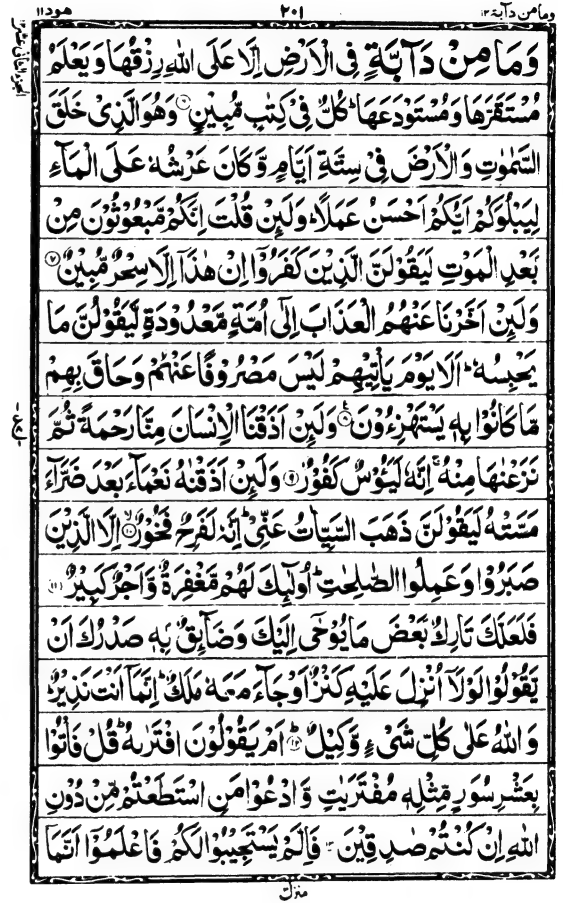 وما من دآبة ۱۲ ۲۰۱ هود ۱۱
وَمَا مِنْ دَآبَّةٍ فِى الْاَرْضِ اِلَّا عَلَى اللّٰهِ رِزْقُهَا وَيَعْلَمُ
مُسْتَقَرَّهَا وَمُسْتَوْدَعَهَا ؕ كُلٌّ فِىْ كِتٰبٍ مُّبِيْنٍ ۶ وَهُوَ الَّذِىْ خَلَقَ
السَّمٰوٰتِ وَالْاَرْضَ فِىْ سِتَّةِ اَيَّامٍ وَّكَانَ عَرْشُهٗ عَلَى الْمَآءِ
لِيَبْلُوَكُمْ اَيُّكُمْ اَحْسَنُ عَمَلًا ؕ وَلَئِنْ قُلْتَ اِنَّكُمْ مَّبْعُوْثُوْنَ مِنْۢ
بَعْدِ الْمَوْتِ لَيَقُوْلَنَّ الَّذِيْنَ كَفَرُوْۤا اِنْ هٰذَاۤ اِلَّا سِحْرٌ مُّبِيْنٌ ۷
وَلَئِنْ اَخَّرْنَا عَنْهُمُ الْعَذَابَ اِلٰٓى اُمَّةٍ مَّعْدُوْدَةٍ لَّيَقُوْلُنَّ مَا
يَحْبِسُهٗ ؕ اَلَا يَوْمَ يَاْتِيْهِمْ لَيْسَ مَصْرُوْفًا عَنْهُمْ وَحَاقَ بِهِمْ
مَّا كَانُوْا بِهٖ يَسْتَهْزِءُوْنَ ۸ وَلَئِنْ اَذَقْنَا الْاِنْسَانَ مِنَّا رَحْمَةً ثُمَّ
نَزَعْنٰهَا مِنْهُ ۚ اِنَّهٗ لَيَـُٔوْسٌ كَفُوْرٌ ۹ وَلَئِنْ اَذَقْنٰهُ نَعْمَآءَ بَعْدَ ضَرَّآءَ
مَسَّتْهُ لَيَقُوْلَنَّ ذَهَبَ السَّيِّاٰتُ عَنِّىْ ؕ اِنَّهٗ لَفَرِحٌ فَخُوْرٌ ۱۰ اِلَّا الَّذِيْنَ
صَبَرُوْا وَعَمِلُوا الصّٰلِحٰتِ ؕ اُولٰٓئِكَ لَهُمْ مَّغْفِرَةٌ وَّاَجْرٌ كَبِيْرٌ ۱۱
فَلَعَلَّكَ تَارِكٌۢ بَعْضَ مَا يُوْحٰٓى اِلَيْكَ وَضَآئِقٌۢ بِهٖ صَدْرُكَ اَنْ
يَّقُوْلُوْا لَوْلَاۤ اُنْزِلَ عَلَيْهِ كَنْزٌ اَوْ جَآءَ مَعَهٗ مَلَكٌ ؕ اِنَّمَاۤ اَنْتَ نَذِيْرٌ ؕ
وَاللّٰهُ عَلٰى كُلِّ شَىْءٍ وَّكِيْلٌ ؕ ۱۲ اَمْ يَقُوْلُوْنَ افْتَرٰىهُ ؕ قُلْ فَاْتُوْا
بِعَشْرِ سُوَرٍ مِّثْلِهٖ مُفْتَرَيٰتٍ وَّادْعُوْا مَنِ اسْتَطَعْتُمْ مِّنْ دُوْنِ
اللّٰهِ اِنْ كُنْتُمْ صٰدِقِيْنَ ۱۳ فَاِلَّمْ يَسْتَجِيْبُوْا لَكُمْ فَاعْلَمُوْۤا اَنَّمَاۤ
منزل